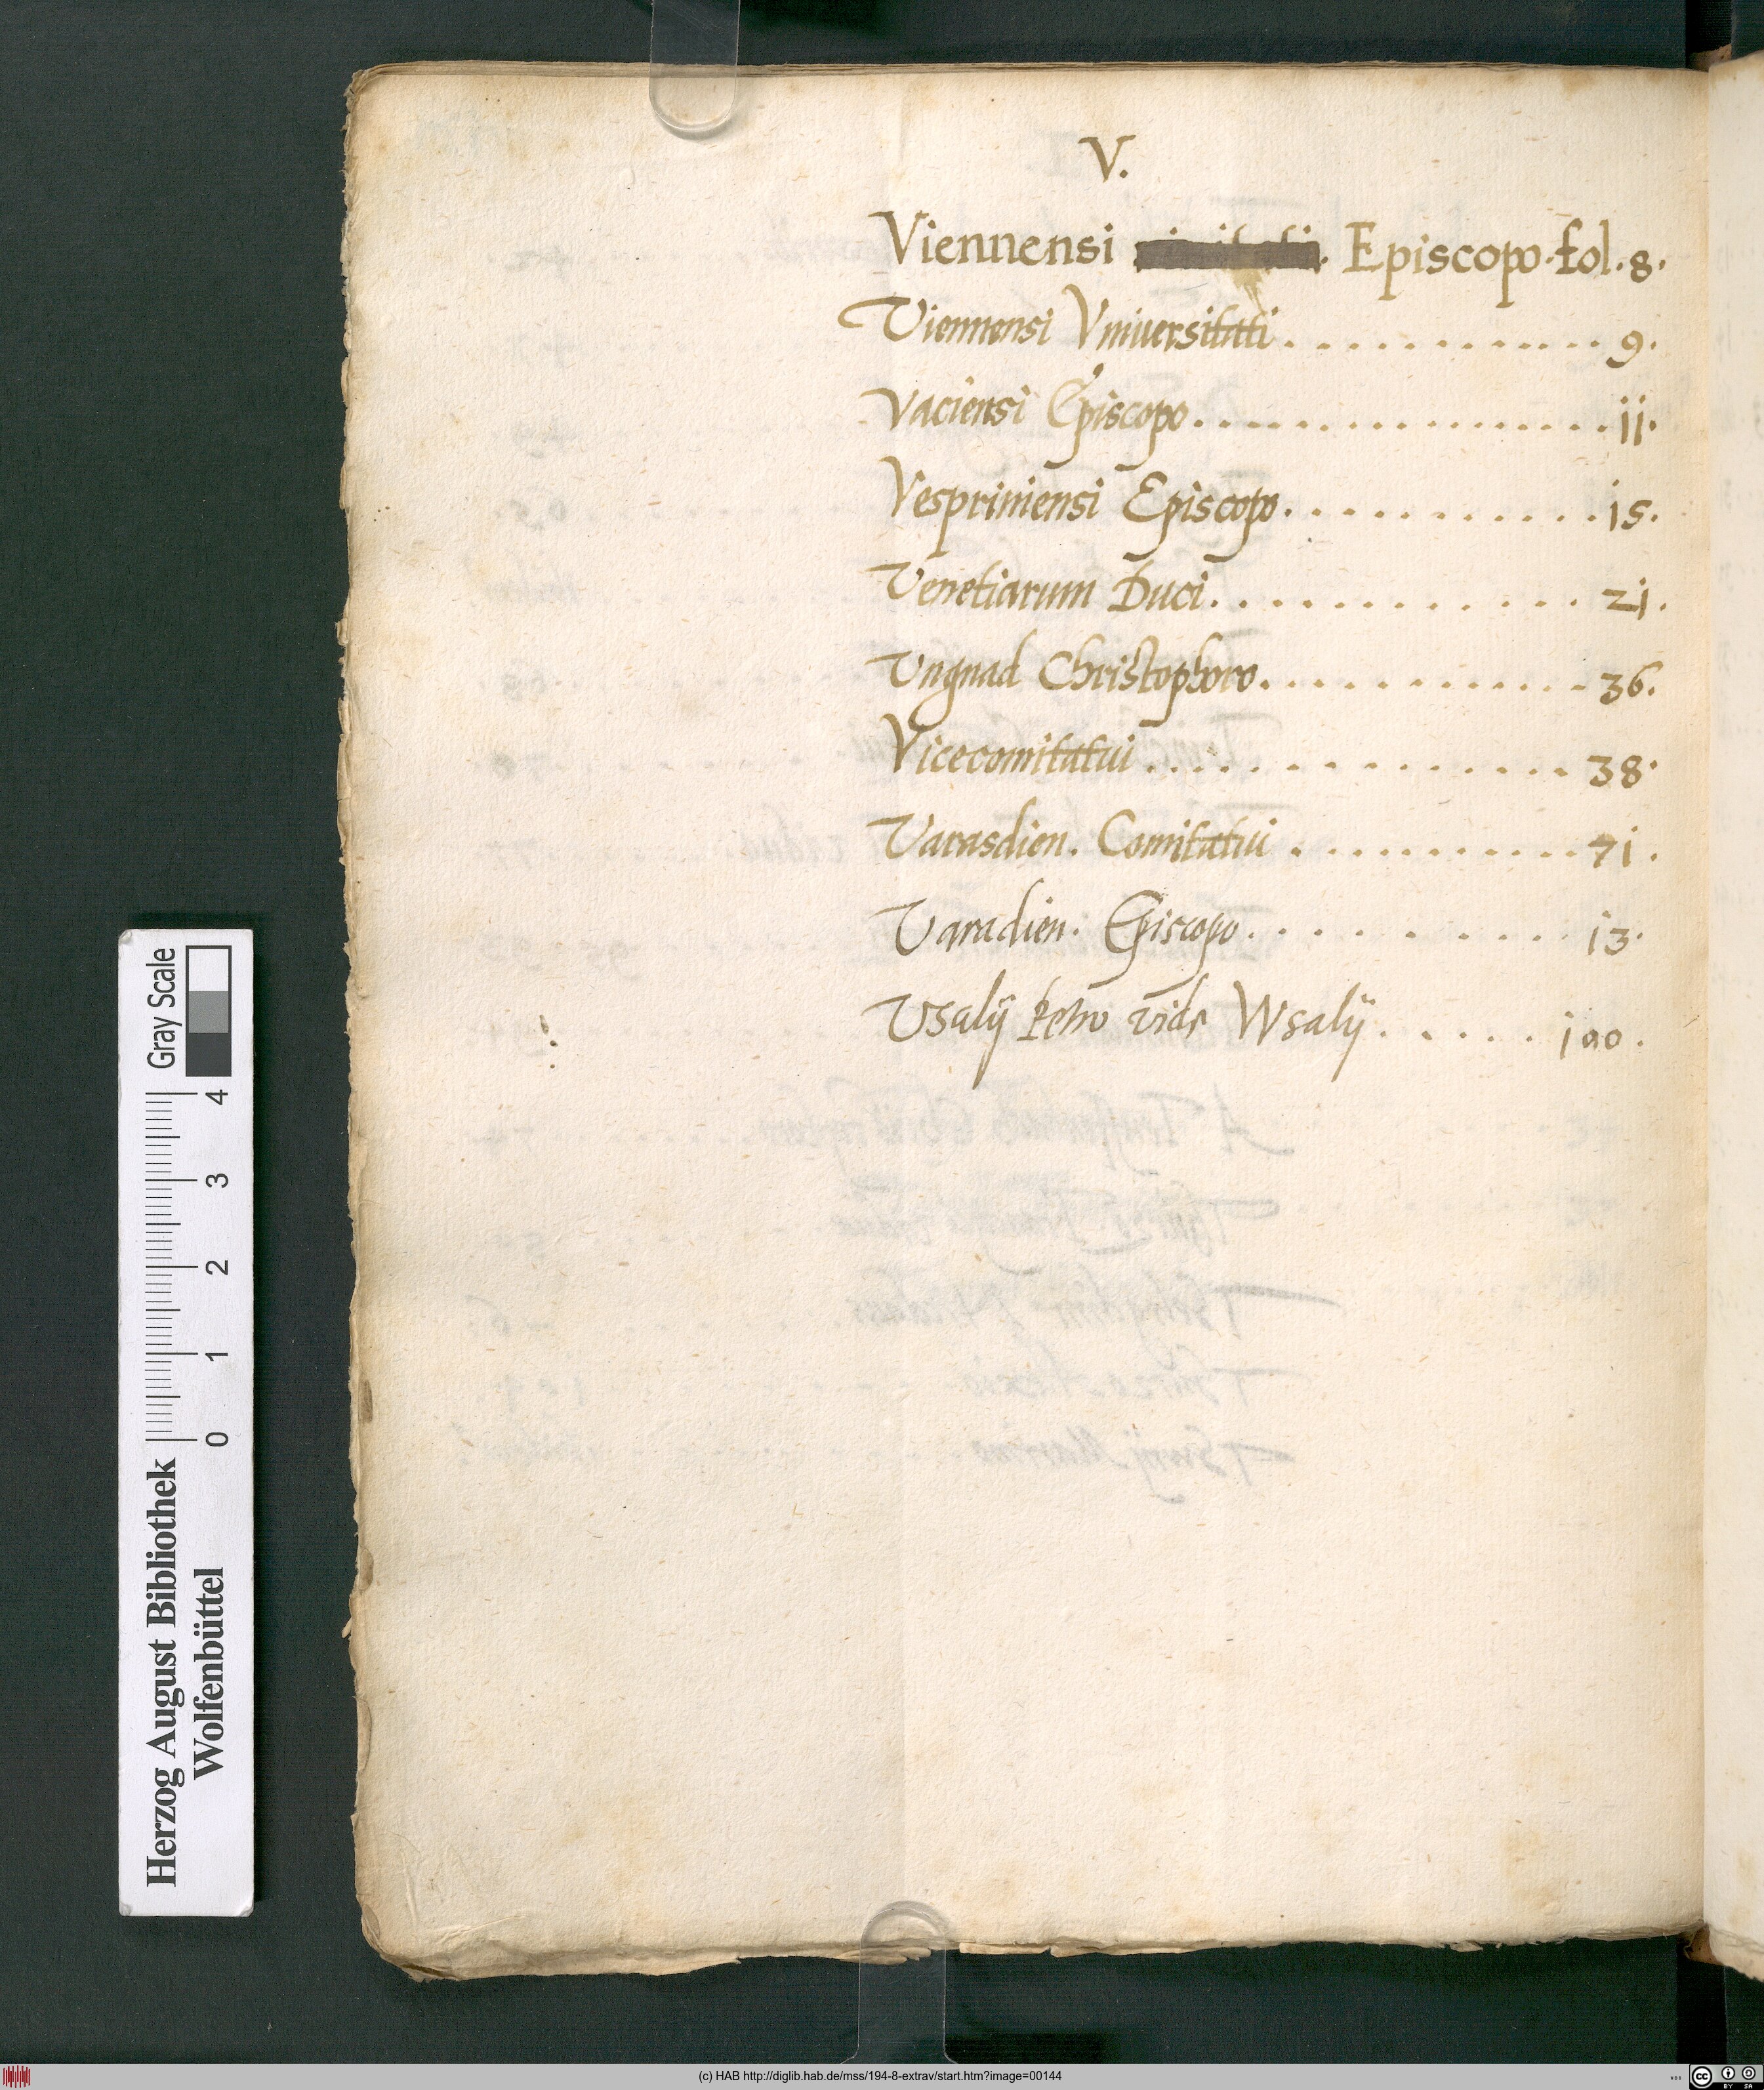 V.
Viennensi Episcopo. fol. 8.
Viennensi Vniuersitati . . . . . . . . . . . . 9.
Vaciensi Episcopo . . . . . . . . . . . . . . . . . ii.
Vespriniensi Episcopo . . . . . . . . . . . . i5.
Venetiarum Duci . . . . . . . . . . . . 2i.
Vngnad Christophoro . . . . . . . . . . . . 36.
Vicecomitatui . . . . . . . . . . . . . . . 38.
Varasdien. Comitatui . . . . . . . . . . 71.
Varadien. Episcopo . . . . . . . . . . i3.
Vsalÿ Petro vide Wsalÿ . . . . . . i00.
Gray Scale
0 1 2 3 4
Herzog August Bibliothek
Wolfenbüttel
(c) HAB http://diglib.hab.de/mss/194-8-extrav/start.htm?image=00144
cc BY SA